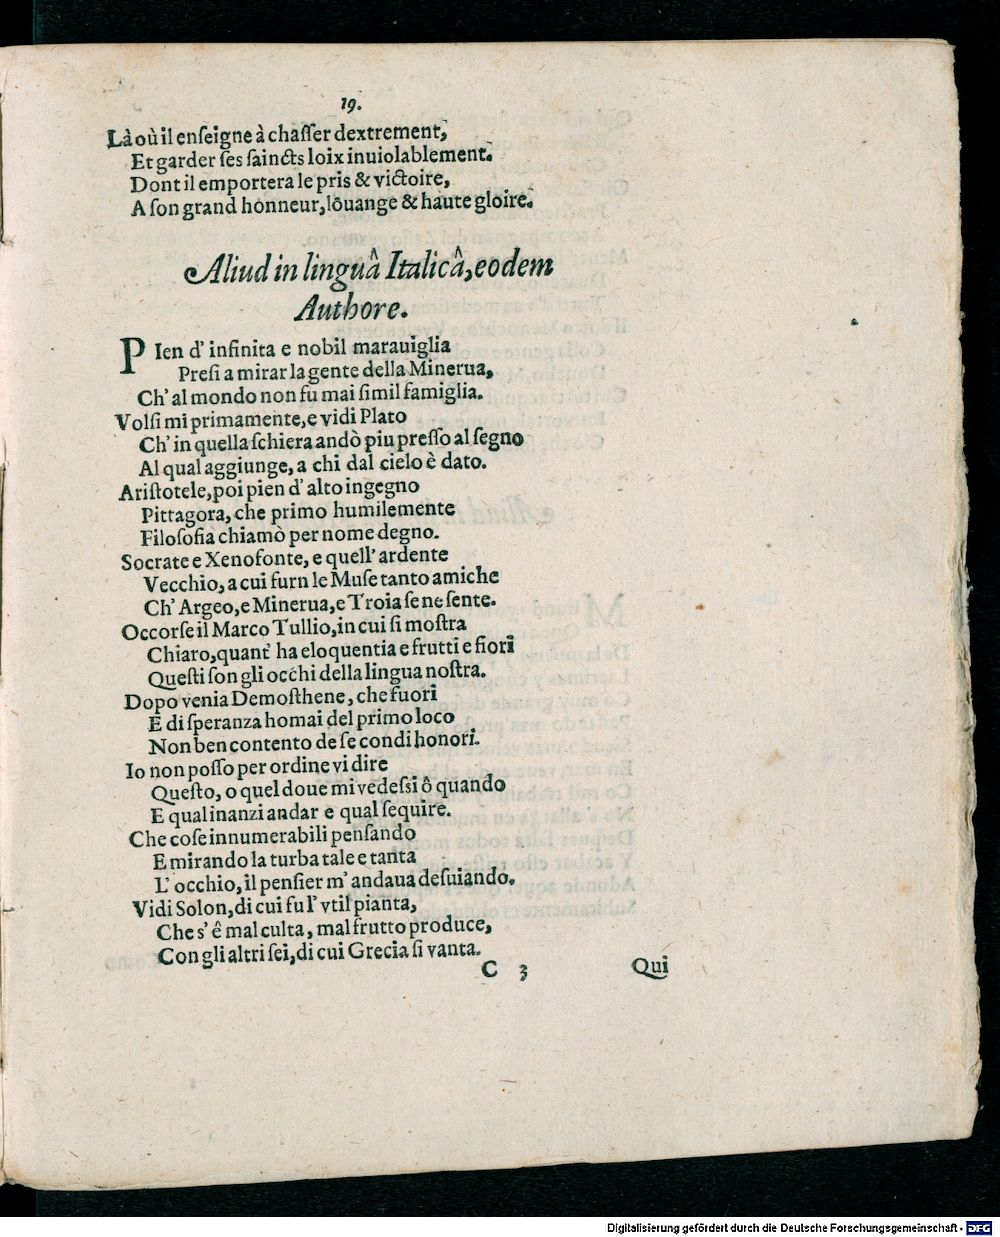 19.
Là où il enſeigne à chaſſer dextrement,
Et garder ſes ſaincts loix inuiolablement.
Dont il emportera le pris & victoire,
A ſon grand honneur, lôuange & haute gloire.
Aliud in linguâ Italicâ, eodem
Authore.
PIen d' infinita e nobil marauiglia
Preſi a mirar la gente della Minerua,
Ch' al mondo non fu mai ſimil famiglia.
Volſi mi primamente, e vidi Plato
Ch' in quella ſchiera andò piu preſſo al ſegno
Al qual aggiunge, a chi dal cielo è dato.
Ariſtotele, poi pien d' alto ingegno
Pittagora, che primo humilemente
Filoſofia chiamò per nome degno.
Socrate e Xenofonte, e quell' ardente
Vecchio, a cui furn le Muſe tanto amiche
Ch' Argeo, e Minerua, e Troia ſe ne ſente.
Occorſe il Marco Tullio, in cui ſi moſtra
Chiaro, quant' ha eloquentia e frutti e fiori
Queſti ſon gli occhi della lingua noſtra.
Dopo venia Demoſthene, che fuori
E di ſperanza homai del primo loco
Non ben contento de ſe condi honori.
Io non poſſo per ordine vi dire
Queſto, o quel doue mi vedeſsi ô quando
E qual inanzi andar e qual ſequire.
Che coſe innumerabili penſando
E mirando la turba tale e tanta
L' occhio, il penſier m' andaua deſuiando.
Vidi Solon, di cui fu l' vtil pianta,
Che s' ê mal culta, mal frutto produce,
Con gli altri ſei, di cui Grecia ſi vanta.
C 3 Qui
Digitalisierung gefördert durch die Deutsche Forschungsgemeinschaft - DFG